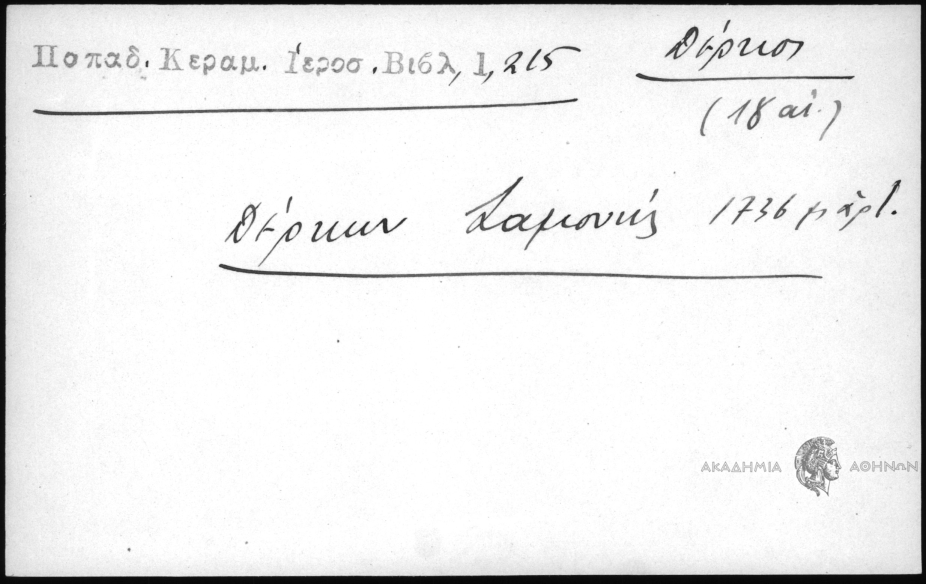 Παπαδ. Κεραμ. Ἱεροσ. Βιβλ, 1, 215
Δέρκος
(18 αἰ.)
Δέρκων Σαμουήλ 1736 μάρτ.
ΑΚΑΔΗΜΙΑ ΑΘΗΝΩΝ